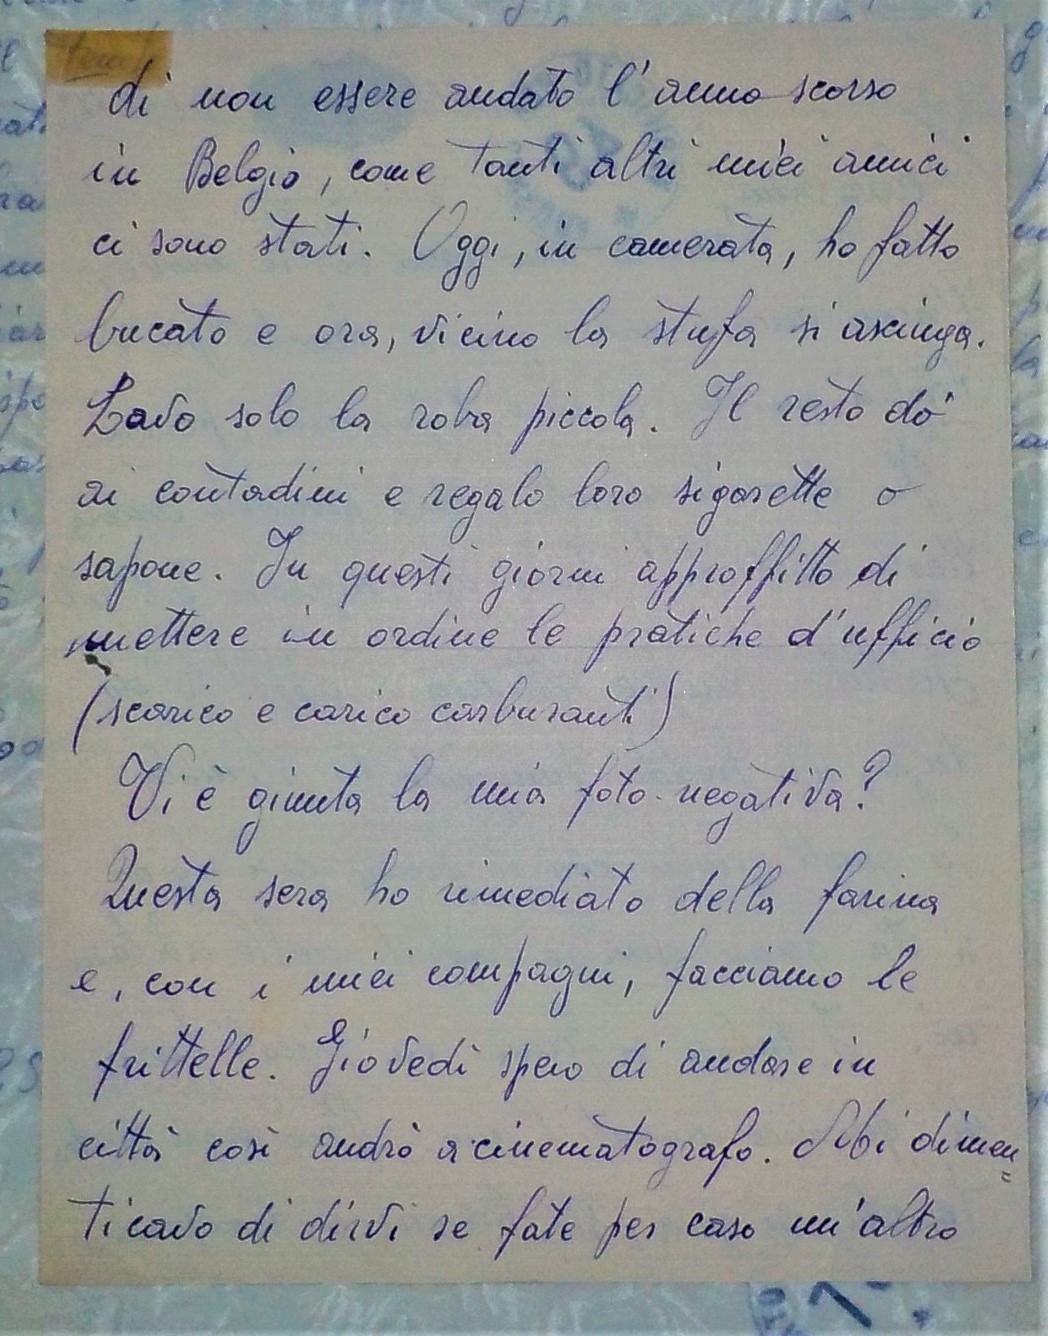 di non essere andato l'anno scorso
in Belgio, come tanti altri miei amici
ci sono stati. Oggi, in camerata, ho fatto
bucato e ora, vicino la stufa si asciuga.
Lavo solo la roba piccola. Il resto dò
ai contadini e regalo loro sigarette o
sapone. In questi giorni approffitto di
mettere in ordine le pratiche d'ufficio
(scarico e carico carburanti)
Vi è giunta la mia foto-negativa?
Questa sera ho rimediato della farina
e, con i miei compagni, facciamo le
frittelle. Giovedì spero di andare in
città così andrò a cinematografo. Mi dimen=
ticavo di dirvi se fate per caso un'altro